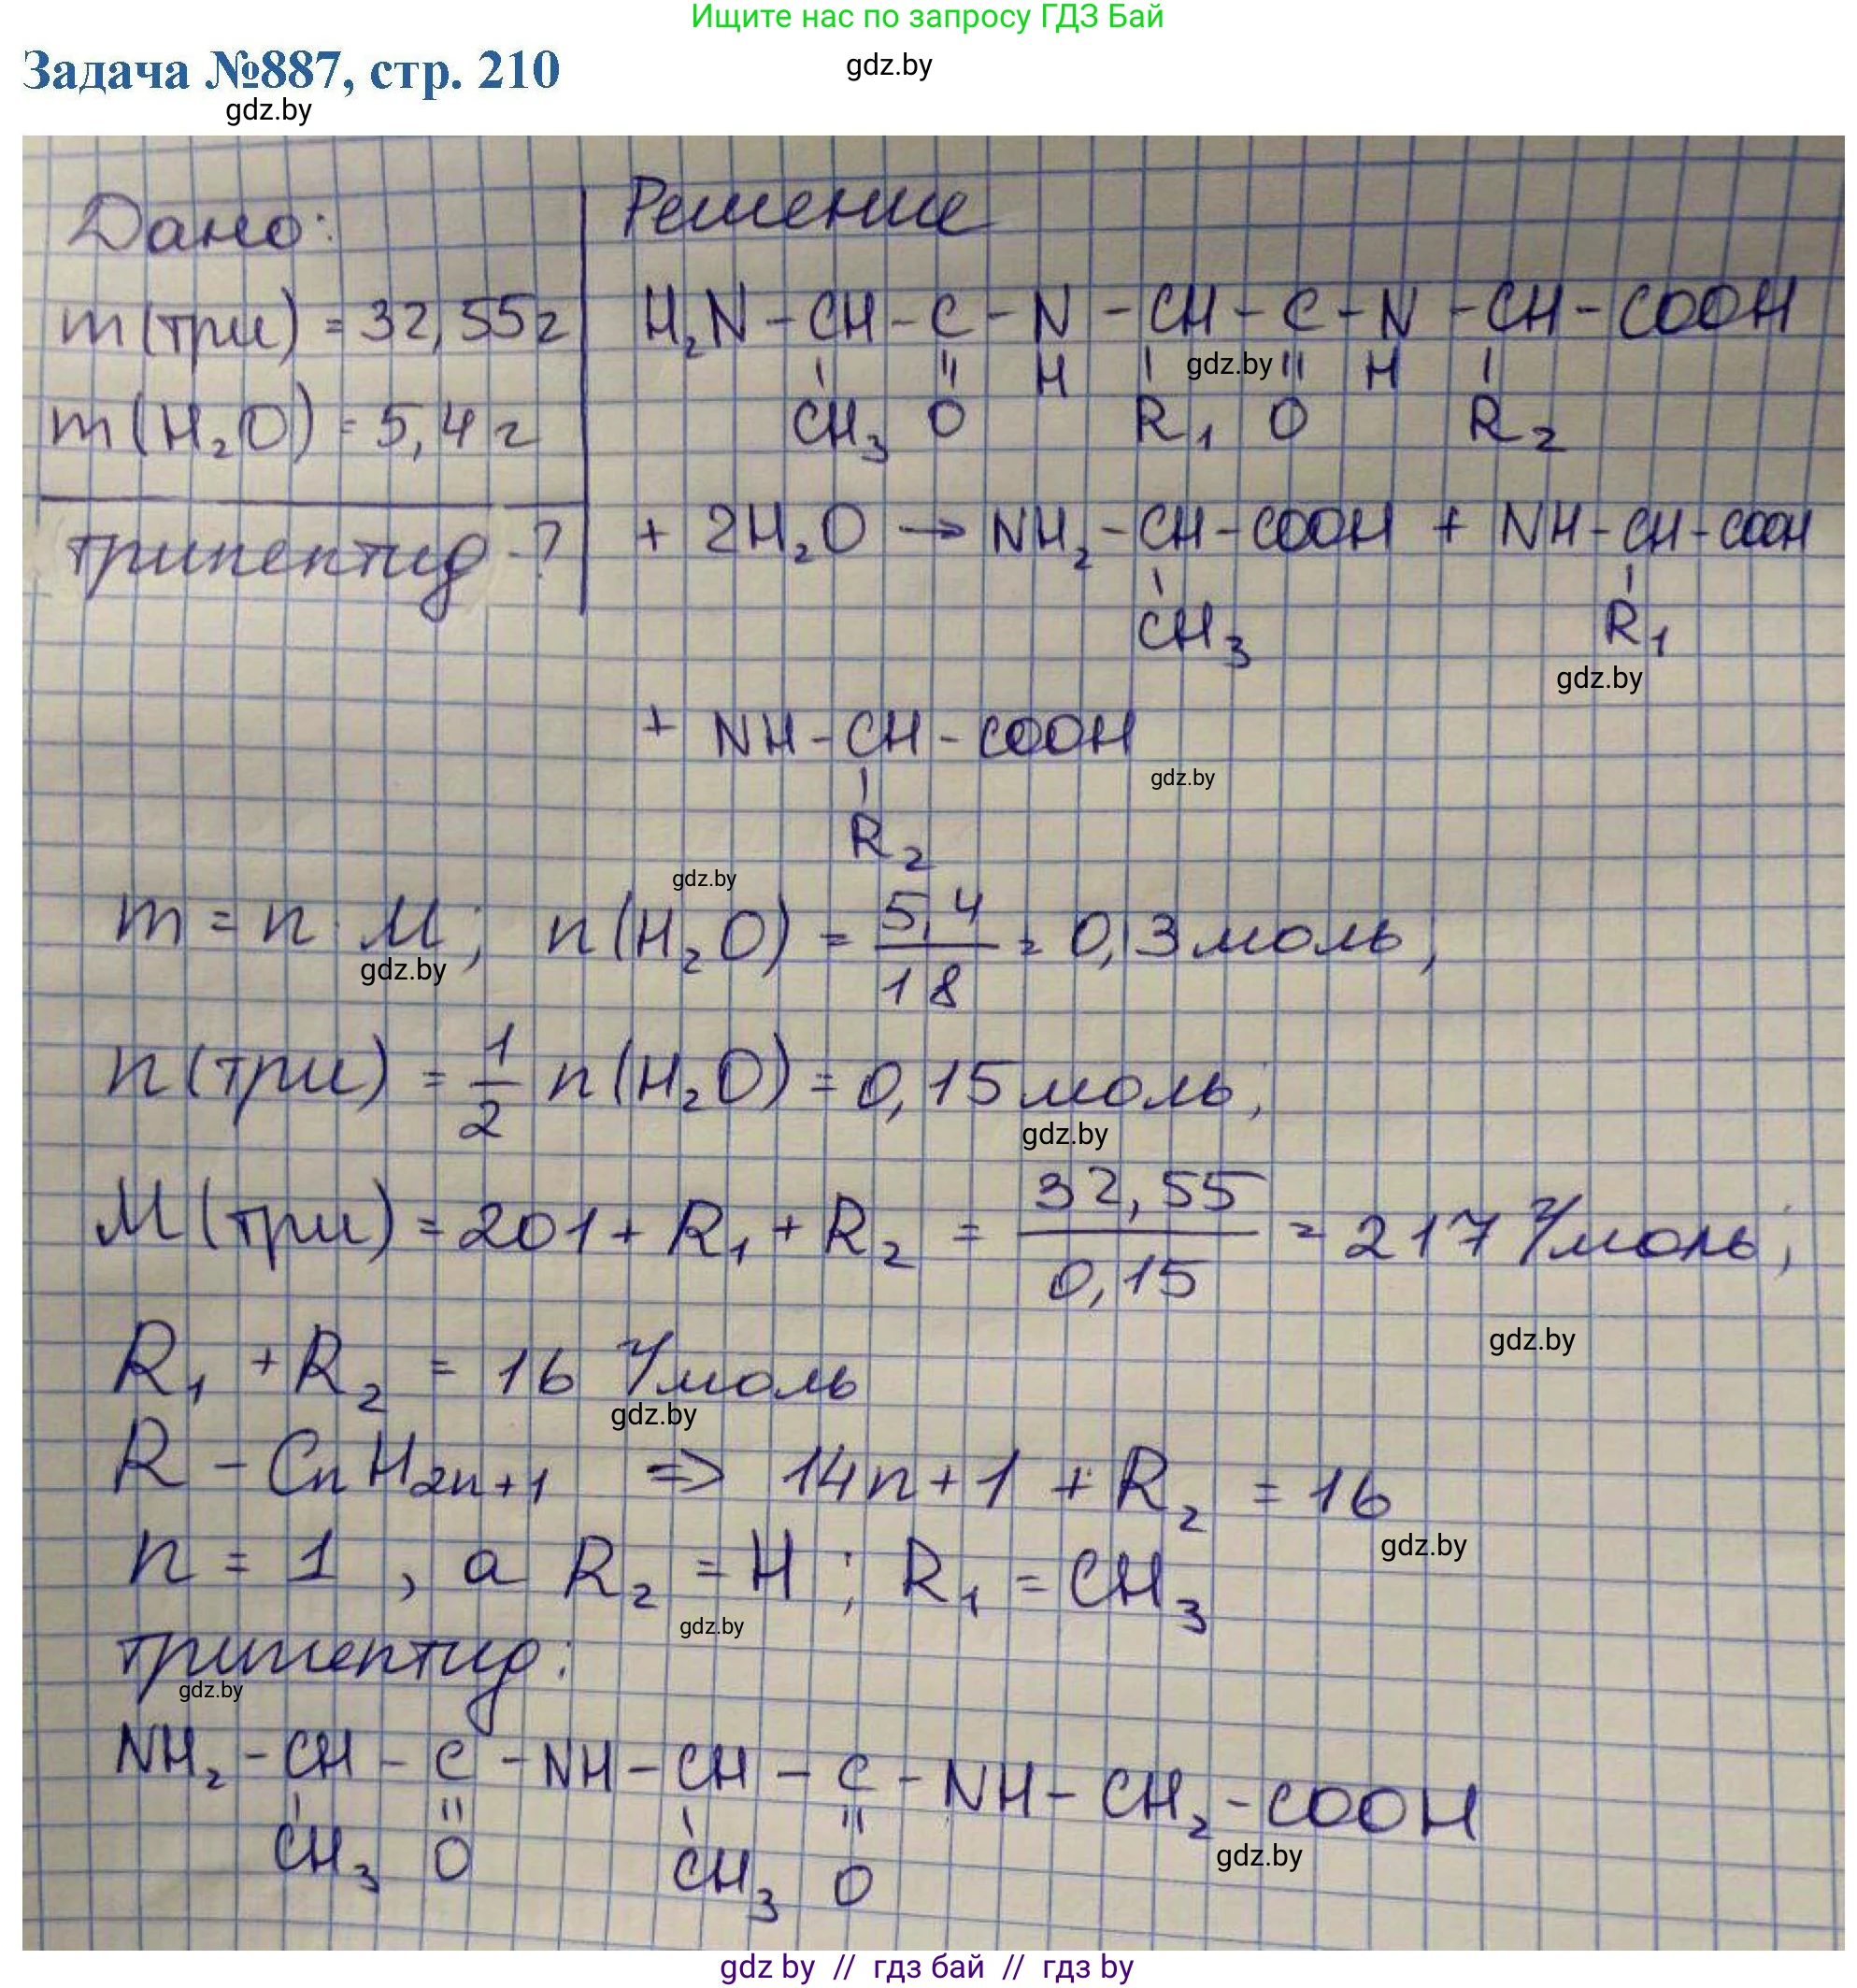 Ищите нас по запросу ГДЗ Бай
Задача №887, стр. 210
gdz.by
gdz.by
Дано:
m(три) = 32,55г
m(H₂O) = 5,4 г
трипептид - ?
Решение
H₂N - CH - C - N - CH - C - N - CH - COOH
gdz.by
CH₃ O H R₁ O H R₂
+ 2H₂O → NH₂ - CH - COOH + NH - CH - COOH
CH₃ R₁
gdz.by
+ NH - CH - COOH
gdz.by
R₂
gdz.by
m = n · M; n(H₂O) = 5,4/18 = 0,3 моль;
gdz.by
n(три) = 1/2 n(H₂O) = 0,15 моль;
gdz.by
M(три) = 201 + R₁ + R₂ = 32,55/0,15 = 217 г/моль;
gdz.by
R₁ + R₂ = 16 г/моль
gdz.by
R - CnH2n+1 => 14n + 1 + R₂ = 16
gdz.by
n = 1, а R₂ = H; R₁ = CH₃
gdz.by
трипептид:
gdz.by
NH₂ - CH - C - NH - CH - C - NH - CH₂ - COOH
CH₃ O CH₃ O
gdz.by
gdz by // гдз бай // гдз by